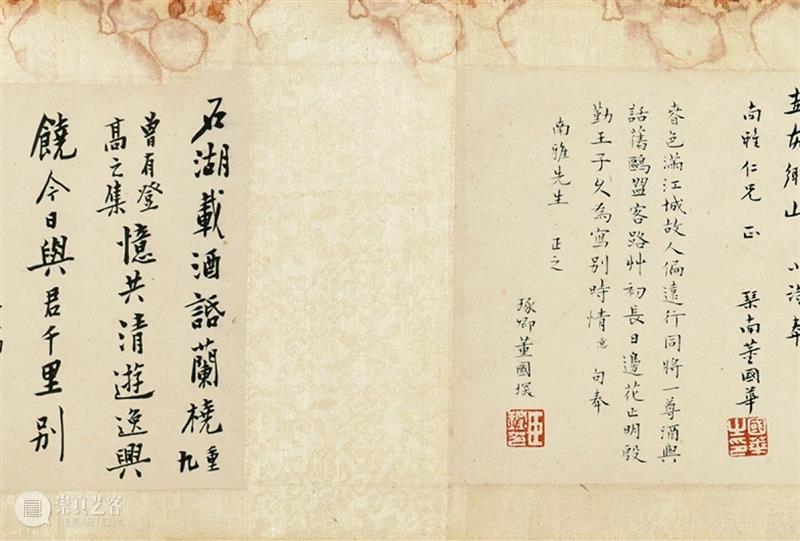 鄉山 小詩奉
南雅仁兄 正 琹南董國華
國華之印
春色滿江城故人偏遠行同將一尊酒與
話舊鷗盟客路艸初長日邊花正明殷
勤王子久為寫別時情 句奉
南雅先生 正之
琢卿董國琛
石湖載酒話蘭橈 重九
曾有登高之集 憶共清遊逸興
饒今日與君千里別
崇真艺客